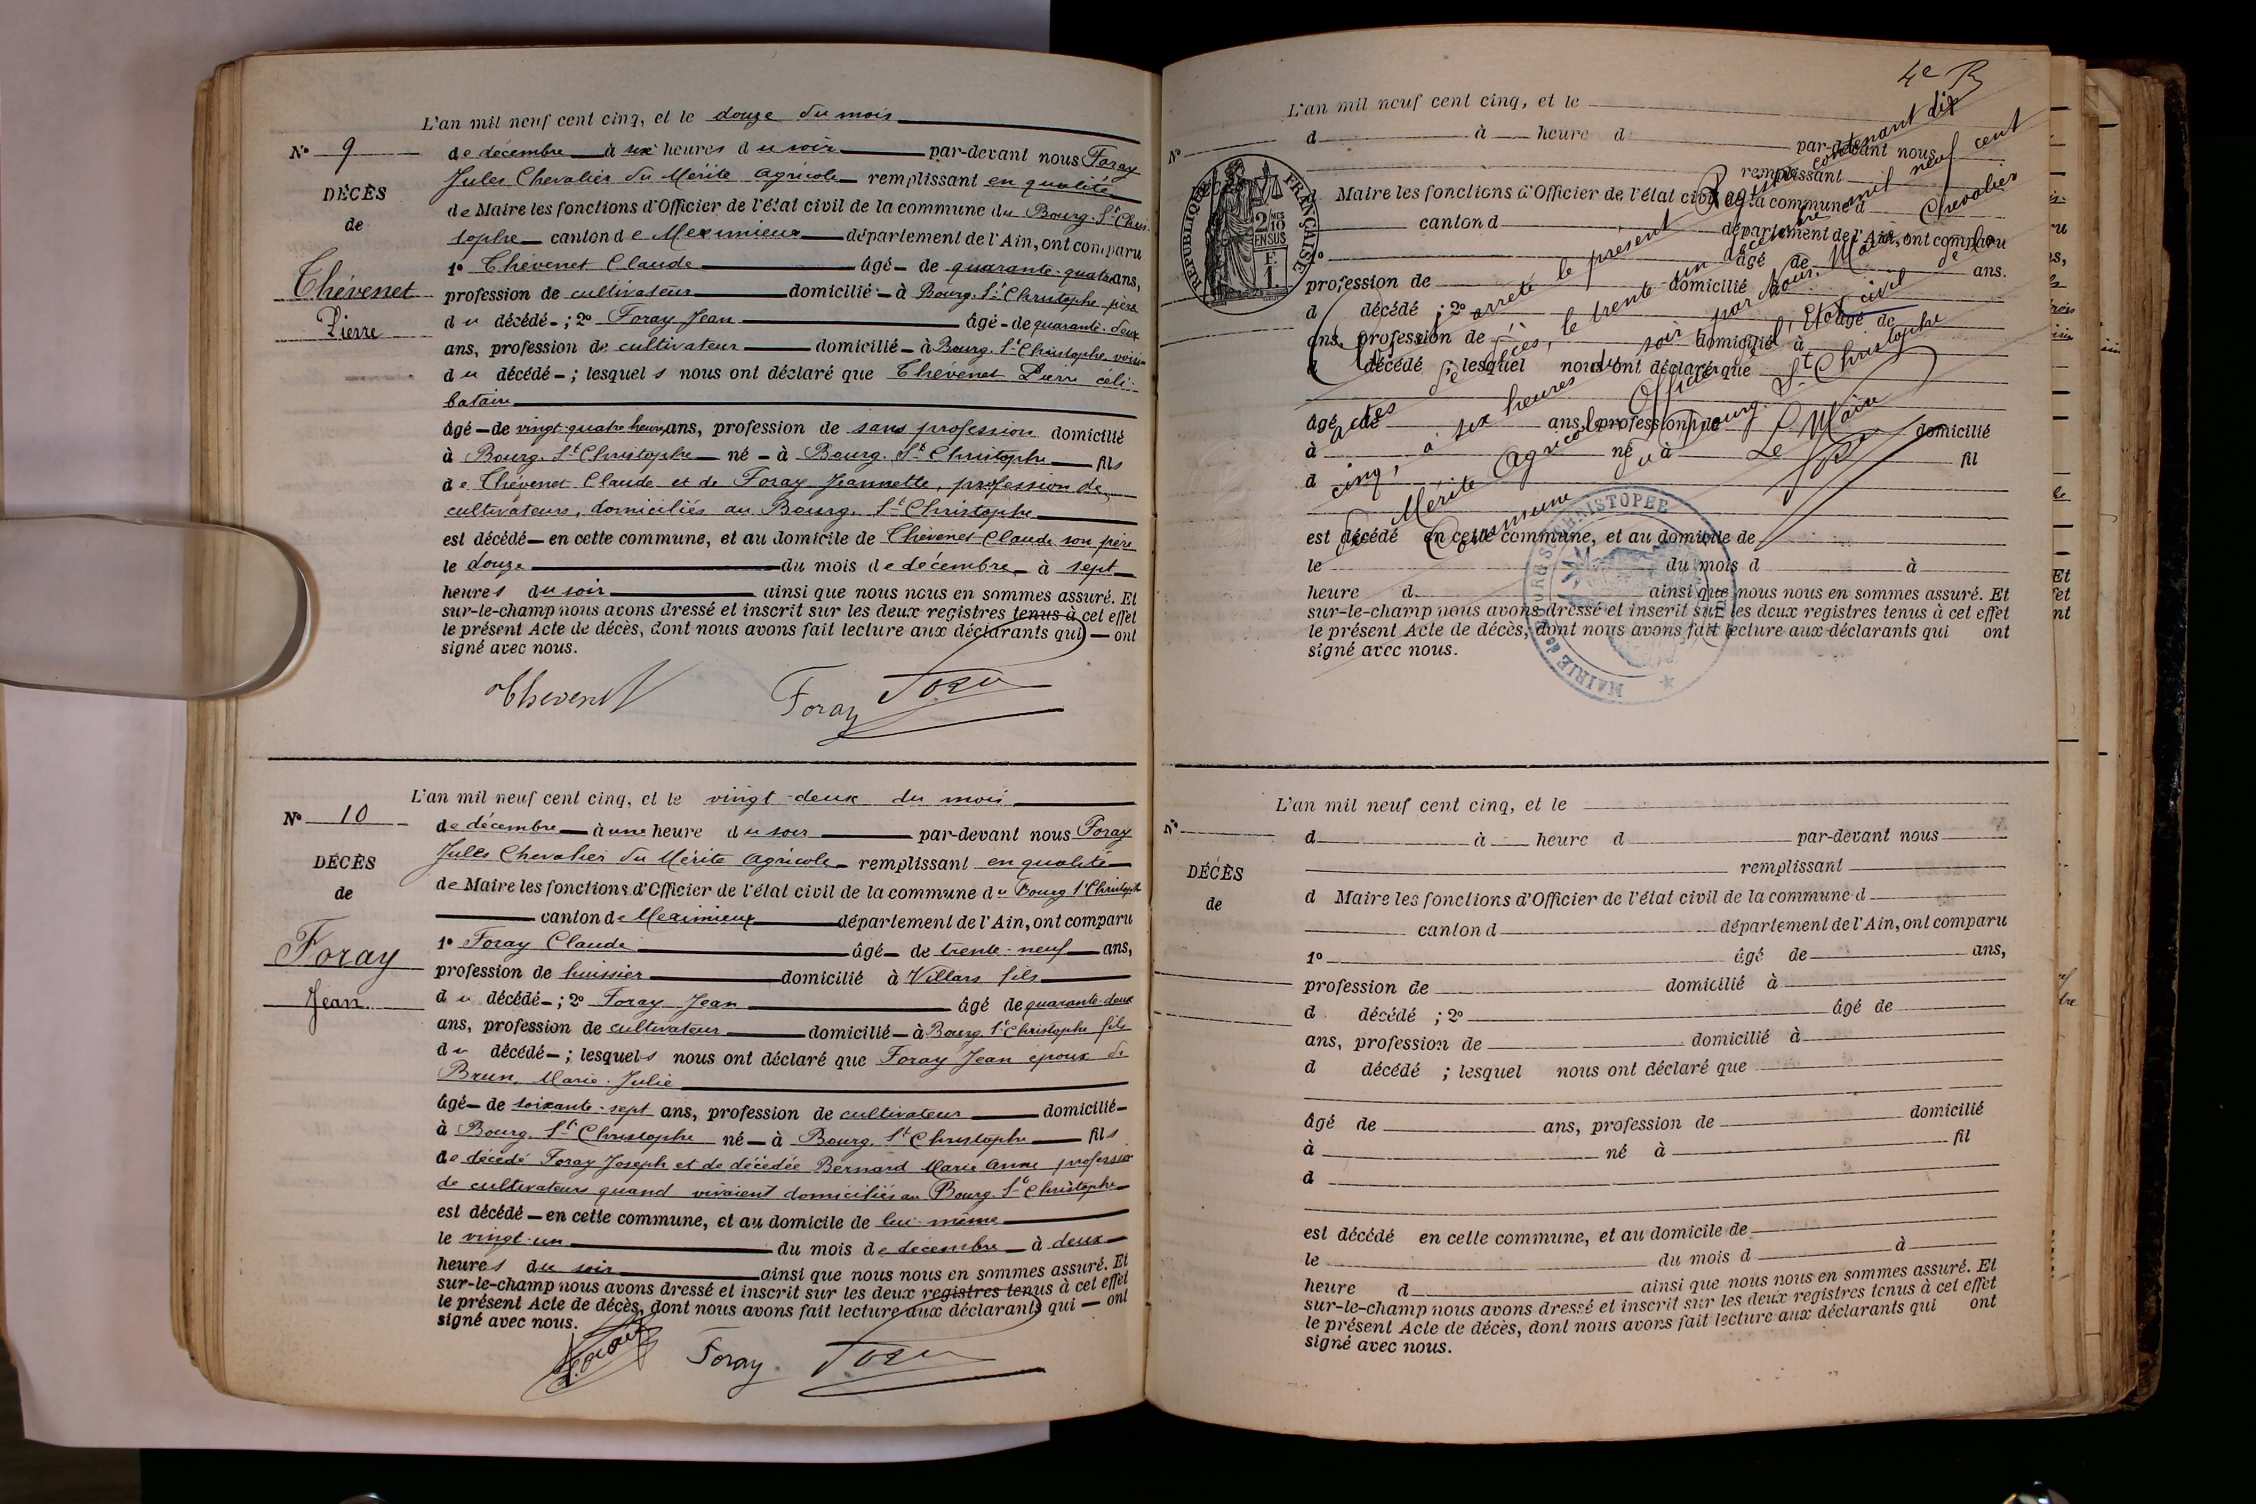 L'an mil neuf cent cinq, et le douze du mois
No 9
de décembre à six heures du soir par-devant nous Foray
Jules Chevalier du Mérite Agricole remplissant en qualité
DÉCÈS
de Maire les fonctions d'Officier de l'état civil de la commune du Bourg. St Chris
de
tophe canton de Meximieux département de l'Ain, ont comparu
1o Thévenet Claude âgé de quarante-quatre ans,
Thévenet
profession de cultivateur domicilié à Bourg. St Christophe père
Pierre
du décédé ; 2o Foray Jean âgé de quarante-deux
ans, profession de cultivateur domicilié à Bourg. St Christophe voisin
du décédé ; lesquels nous ont déclaré que Thévenet Pierre céli-
bataire
âgé de vingt-quatre heures ans, profession de sans profession domicilié
à Bourg. St Christophe né à Bourg. St Christophe fils
de Thévenet Claude et de Foray Jeannette, profession de
cultivateurs, domiciliés au Bourg. St Christophe
est décédé en cette commune, et au domicile de Thévenet Claude son père
le douze du mois de décembre à sept
heures du soir ainsi que nous nous en sommes assuré. Et
sur-le-champ nous avons dressé et inscrit sur les deux registres tenus à cet effet
le présent Acte de décès, dont nous avons fait lecture aux déclarants qui ont
signé avec nous.
Thevenet Foray Foray
L'an mil neuf cent cinq, et le vingt-deux du mois
No 10
de décembre à une heure du soir par-devant nous Foray
Jules Chevalier du Mérite Agricole remplissant en qualité
DÉCÈS
de Maire les fonctions d'Officier de l'état civil de la commune du Bourg St Christophe
de
canton de Meximieux département de l'Ain, ont comparu
1o Foray Claude âgé de trente-neuf ans,
Foray
profession de huissier domicilié à Villars fils
Jean
du décédé ; 2o Foray Jean âgé de quarante-deux
ans, profession de cultivateur domicilié à Bourg St Christophe fils
du décédé ; lesquels nous ont déclaré que Foray Jean époux de
Brun, Marie. Julie
âgé de soixante-sept ans, profession de cultivateur domicilié
à Bourg. St Christophe né à Bourg. St Christophe fils
de décédé Foray Joseph et de décédée Bernard Marie Anne profession
de cultivateurs quand vivaient domiciliés au Bourg. St Christophe
est décédé en cette commune, et au domicile de lui-même
le vingt-un du mois de décembre à deux
heures du soir ainsi que nous nous en sommes assuré. Et
sur-le-champ nous avons dressé et inscrit sur les deux registres tenus à cet effet
le présent Acte de décès, dont nous avons fait lecture aux déclarants qui ont
signé avec nous.
Foray Foray. Foray
4e
L'an mil neuf cent cinq, et le
No
d à heure d par-devant nous
remplissant
d Maire les fonctions d'Officier de l'état civil de la commune d
canton d département de l'Ain, ont comparu
1o âgé de ans.
profession de domicilié à
d décédé ; 2o âgé de
ans, profession de domicilié à
d décédé ; lesquel nous ont déclaré que
âgé de ans, profession de domicilié
à né à fil
d
est décédé en cette commune, et au domicile de
le du mois d à
heure d ainsi que nous nous en sommes assuré. Et
sur-le-champ nous avons dressé et inscrit sur les deux registres tenus à cet effet
le présent Acte de décès, dont nous avons fait lecture aux déclarants qui ont
signé avec nous.
RÉPUBLIQUE FRANÇAISE
2/10
EN SUS
F.
1.
arrêté le présent Registre contenant dix
actes de décès, le trente-un décembre mil neuf cent
cinq, à six heures du soir par Nous, Maire Chevalier
du Mérite Agricole Officier de l'Etat civil de la
Commune du Bourg. St Christophe
Le Maire
MAIRIE de BOURG ST CHRISTOPHE
L'an mil neuf cent cinq, et le
No
d à heure d par-devant nous
remplissant
DÉCÈS
d Maire les fonctions d'Officier de l'état civil de la commune d
de
canton d département de l'Ain, ont comparu
1o âgé de ans,
profession de domicilié à
d décédé ; 2o âgé de
ans, profession de domicilié à
d décédé ; lesquel nous ont déclaré que
âgé de ans, profession de domicilié
à né à fil
d
est décédé en cette commune, et au domicile de
le du mois d à
heure d ainsi que nous nous en sommes assuré. Et
sur-le-champ nous avons dressé et inscrit sur les deux registres tenus à cet effet
le présent Acte de décès, dont nous avons fait lecture aux déclarants qui ont
signé avec nous.